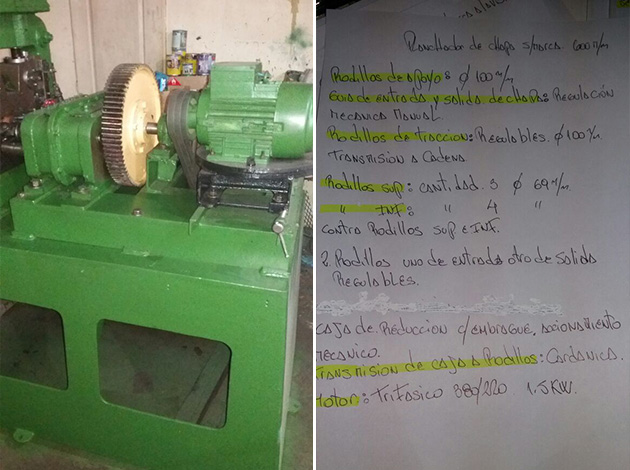 Planchador de chapa s/marca 600 m/m
Rodillos de apoyo: Ø 100 m/m
Guia de entrada y salida de chapa: Regulación
mecanica manual.
Rodillos de traccion: Regulables. Ø 100 m/m.
Transmision a cadena
Rodillos sup: cantidad. 3 Ø 69 m/m.
" Inf: " 4 "
contra Rodillos sup e Inf.
2. Rodillos uno de entrada otro de salida
Regulables.
caja de Reduccion c/embrague, accionamiento
mecanico.
Transmision de caja a Rodillos: Cardanica.
Motor: Trifasico 380/220 1.5KW.